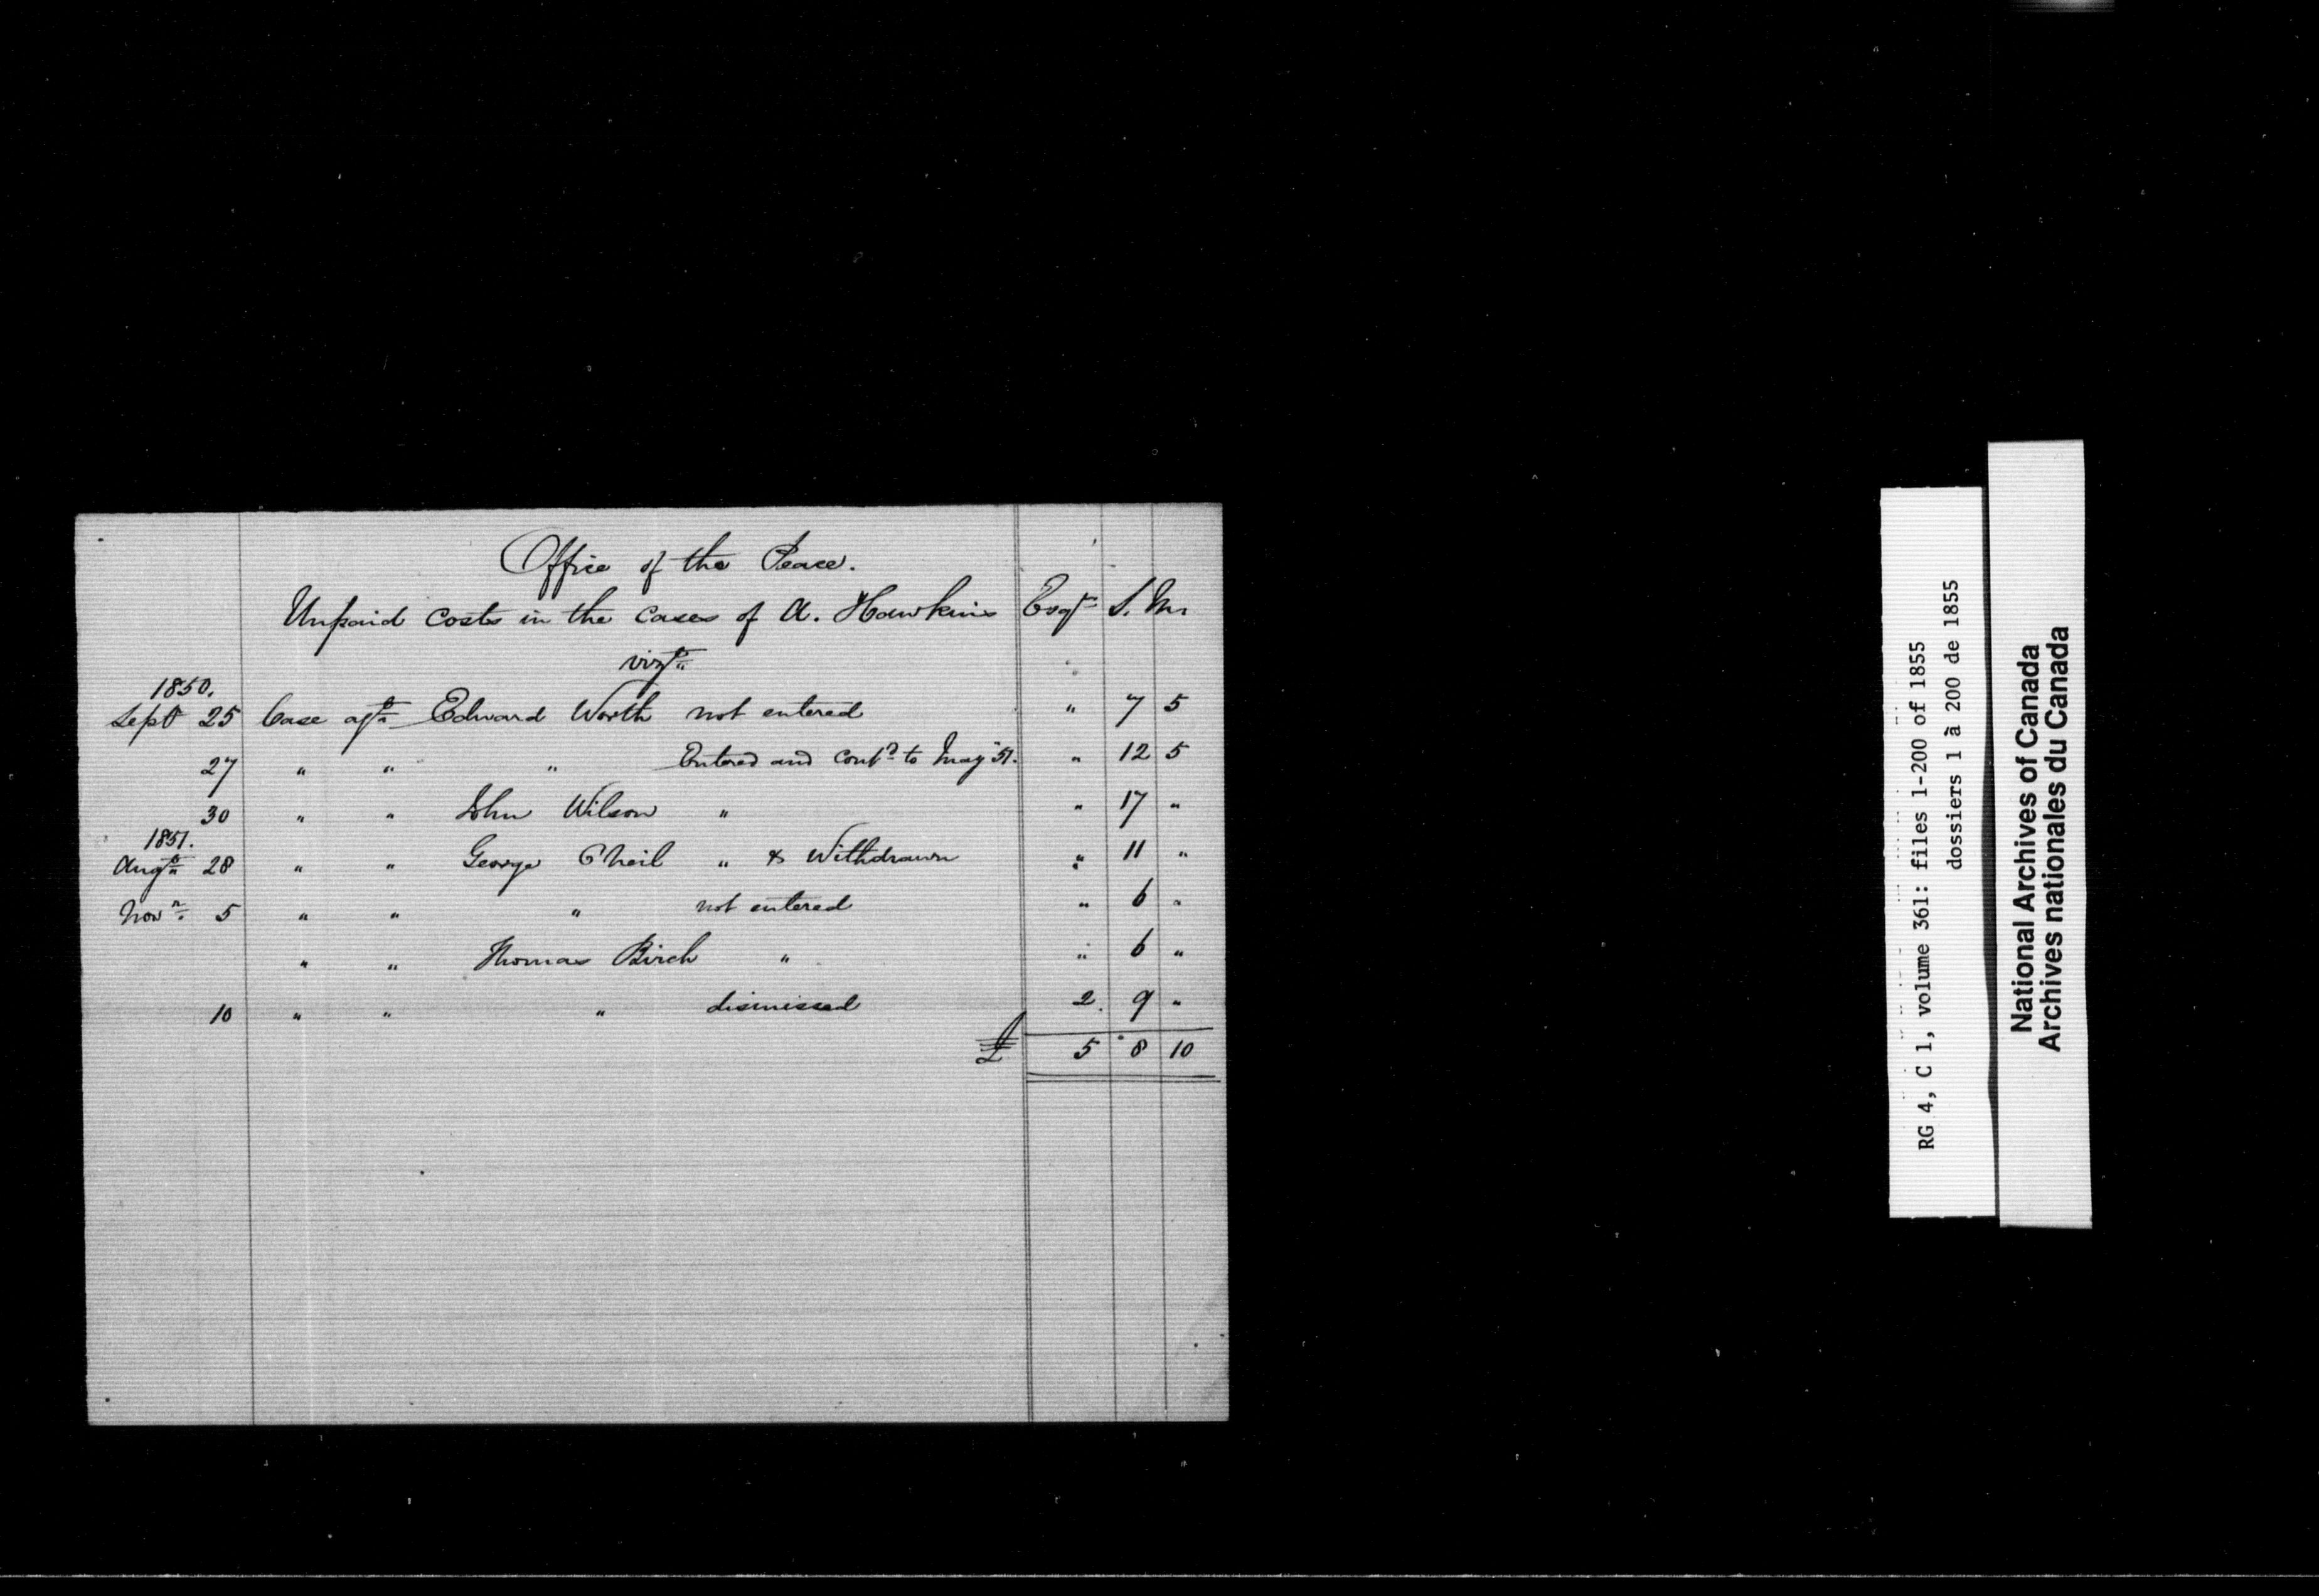 Office of the Peace.
Unpaid Costs in the Cases of A. Hawkins Esqr S. M.
vizt
1850.
Sept 25 Case agt Edward Worth not entered " 7 5
27 " " " Entered and contd to May 51. " 12 5
30 " " John Wilson " " 17 "
1851.
Augt 28 " " George O'Neil " & Withdrawn " 11 "
Novr 5 " " " not entered " 6 "
" " Thomas Birch " " 6 "
10 " " " dismissed 2. 9 "
£ 5 8 10
RG 4, C 1, volume 361: files 1-200 of 1855
dossiers 1 à 200 de 1855
National Archives of Canada
Archives nationales du Canada